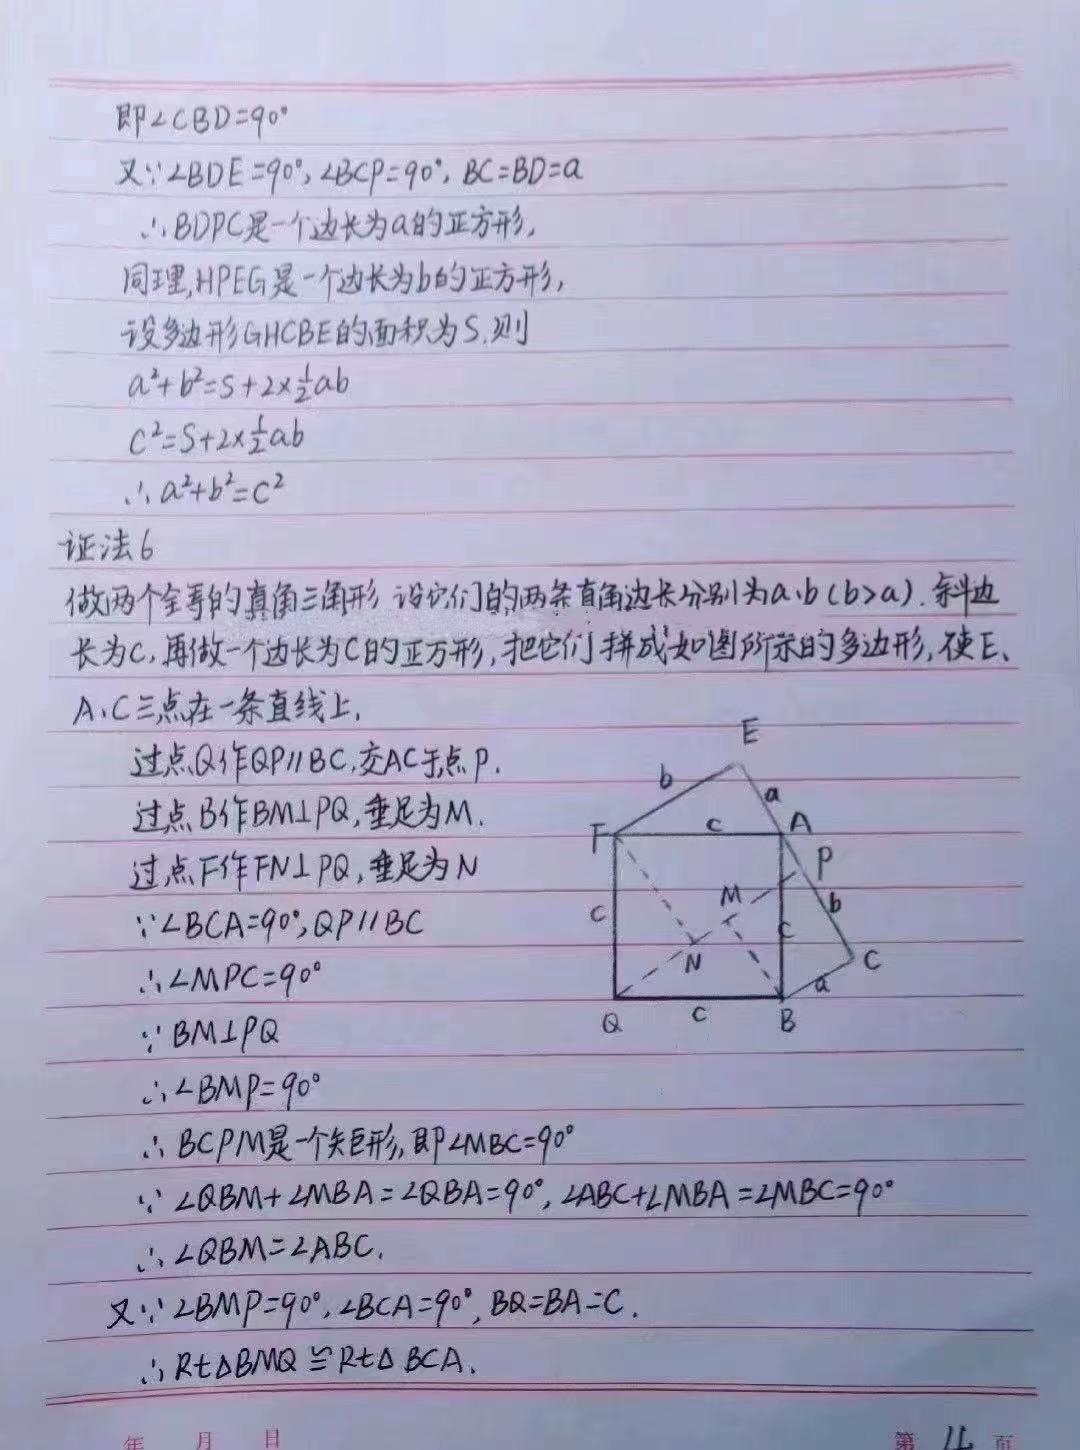 即∠CBD=90°
又∵∠BDE=90°,∠BCP=90°,BC=BD=a
∴BDPC是一个边长为a的正方形,
同理,HPEG是一个边长为b的正方形,
设多边形GHCBE的面积为S.则
a²+b²=S+2×½ab
c²=S+2×½ab
∴a²+b²=c²
证法6
做两个全等的直角三角形 设它们的两条直角边长分别为a、b(b>a).斜边
长为c,再做一个边长为c的正方形,把它们拼成如图所示的多边形,使E、
A、C三点在一条直线上,
过点Q作QP//BC,交AC于点P.
过点B作BM⊥PQ,垂足为M.
过点F作FN⊥PQ,垂足为N
∵∠BCA=90°,QP//BC
∴∠MPC=90°
∵BM⊥PQ
∴∠BMP=90°
∴BCPM是一个矩形,即∠MBC=90°
∵∠QBM+∠MBA=∠QBA=90°,∠ABC+∠MBA=∠MBC=90°
∴∠QBM=∠ABC.
又∵∠BMP=90°,∠BCA=90°,BQ=BA=C.
∴Rt△BMQ≌Rt△BCA.
E
b
a
F
c
A
P
M
b
c
c
N
C
a
Q
c
B
年 月 日
第 4 页